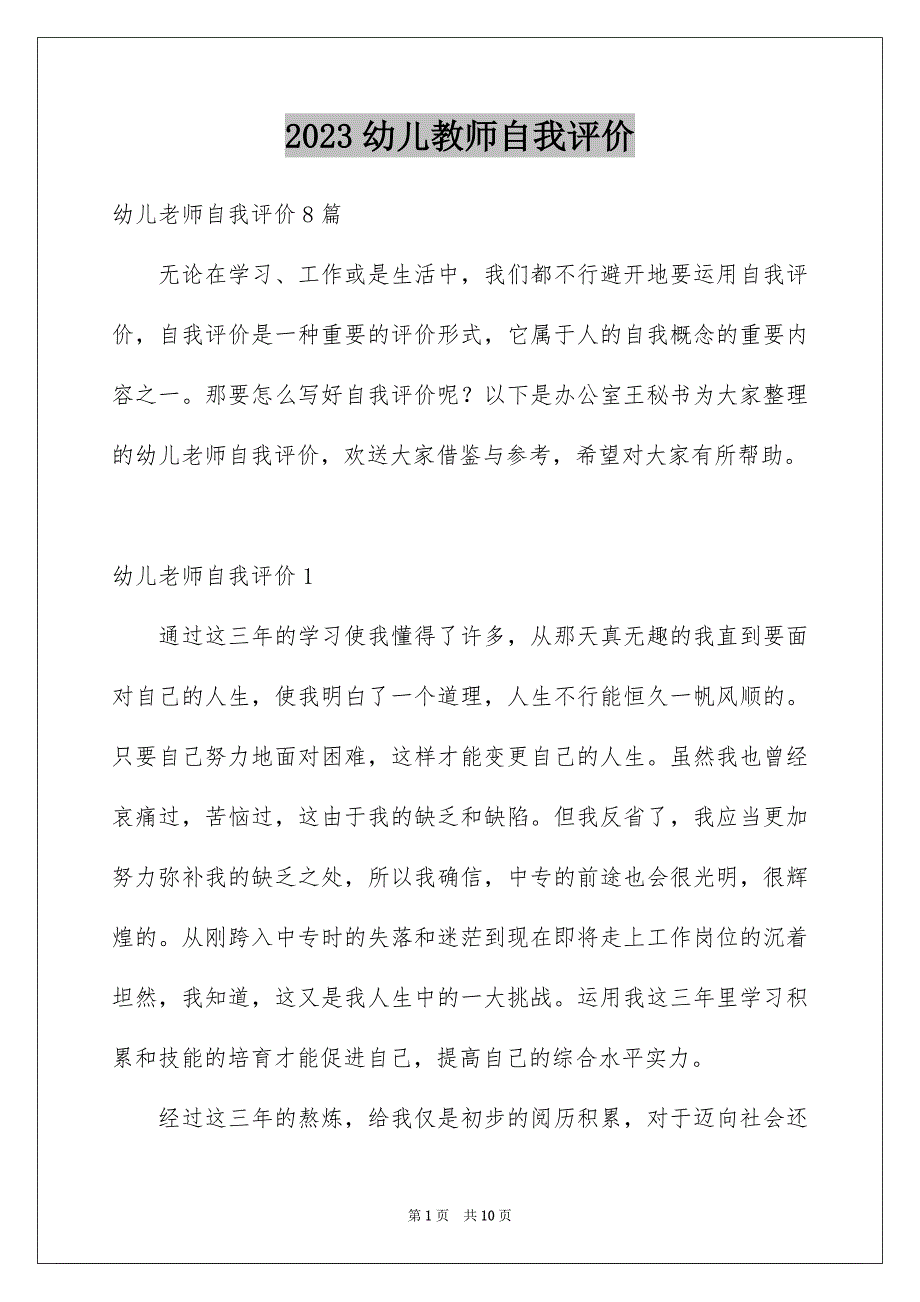 2023幼儿教师自我评价
幼儿老师自我评价8篇
无论在学习、工作或是生活中，我们都不行避开地要运用自我评
价，自我评价是一种重要的评价形式，它属于人的自我概念的重要内
容之一。那要怎么写好自我评价呢？以下是办公室王秘书为大家整理
的幼儿老师自我评价，欢送大家借鉴与参考，希望对大家有所帮助。
幼儿老师自我评价1
通过这三年的学习使我懂得了许多，从那天真无趣的我直到要面
对自己的人生，使我明白了一个道理，人生不行能恒久一帆风顺的。
只要自己努力地面对困难，这样才能变更自己的人生。虽然我也曾经
哀痛过，苦恼过，这由于我的缺乏和缺陷。但我反省了，我应当更加
努力弥补我的缺乏之处，所以我确信，中专的前途也会很光明，很辉
煌的。从刚跨入中专时的失落和迷茫到现在即将走上工作岗位的沉着
坦然，我知道，这又是我人生中的一大挑战。运用我这三年里学习积
累和技能的培育才能促进自己，提高自己的综合水平实力。
经过这三年的熬炼，给我仅是初步的阅历积累，对于迈向社会还
第 1 页 共 10 页